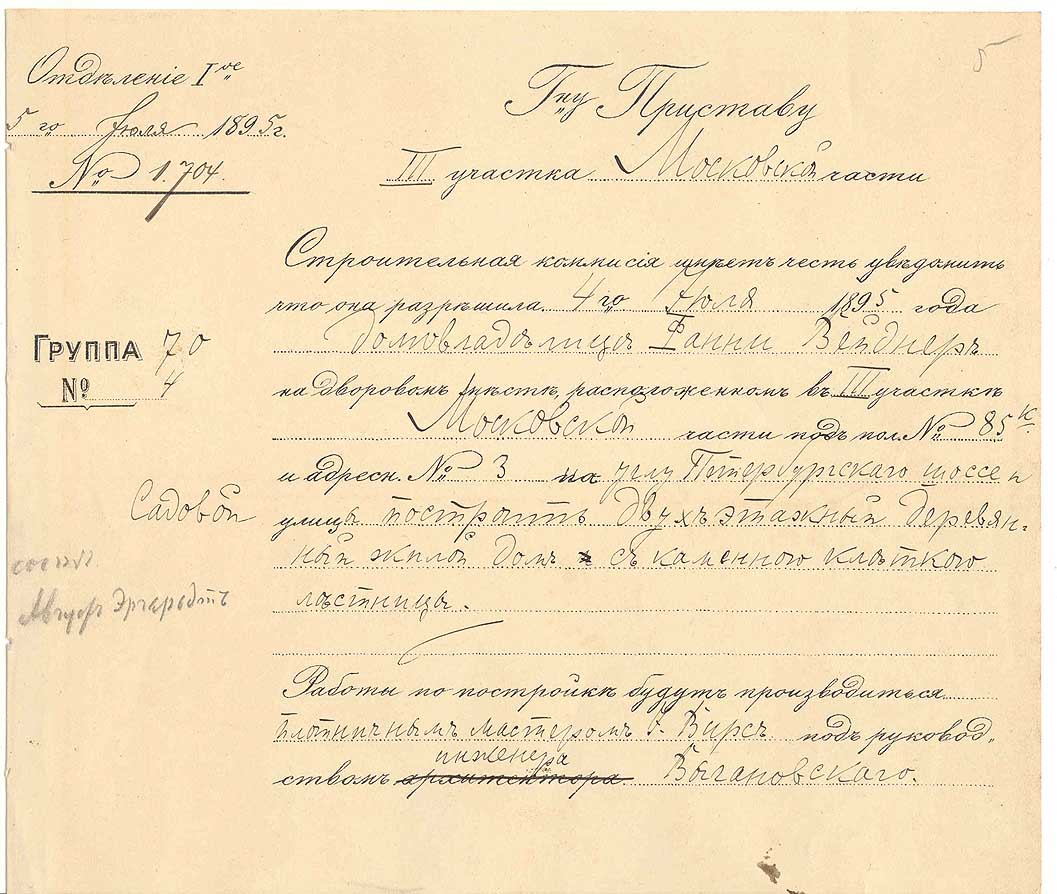 5
Отдѣленіе Iое
5го Іюля 1895 г.
№ 1.704.
Гну Приставу
III участка Московской части
Строительная коммисія имѣетъ честь увѣдомить
что она разрѣшила 4го Іюля 1895 года
домовладѣлицѣ Фанни Вейднеръ
Группа 70
№ 4
на дворовомъ мѣстѣ, расположенномъ въ III участкѣ
Московской части подъ пол. № 85 К.
и адресн. № 3 на углу Петербургскаго шоссе и
Садовой
улицы построить двухъэтажный деревян-
ный жилой домъ съ каменною клѣткою
лѣстницы.
Работы по постройкѣ будутъ производиться
плотничнымъ мастеромъ Вирсъ подъ руковод-
инженера
ствомъ архитектора Выгановскаго.